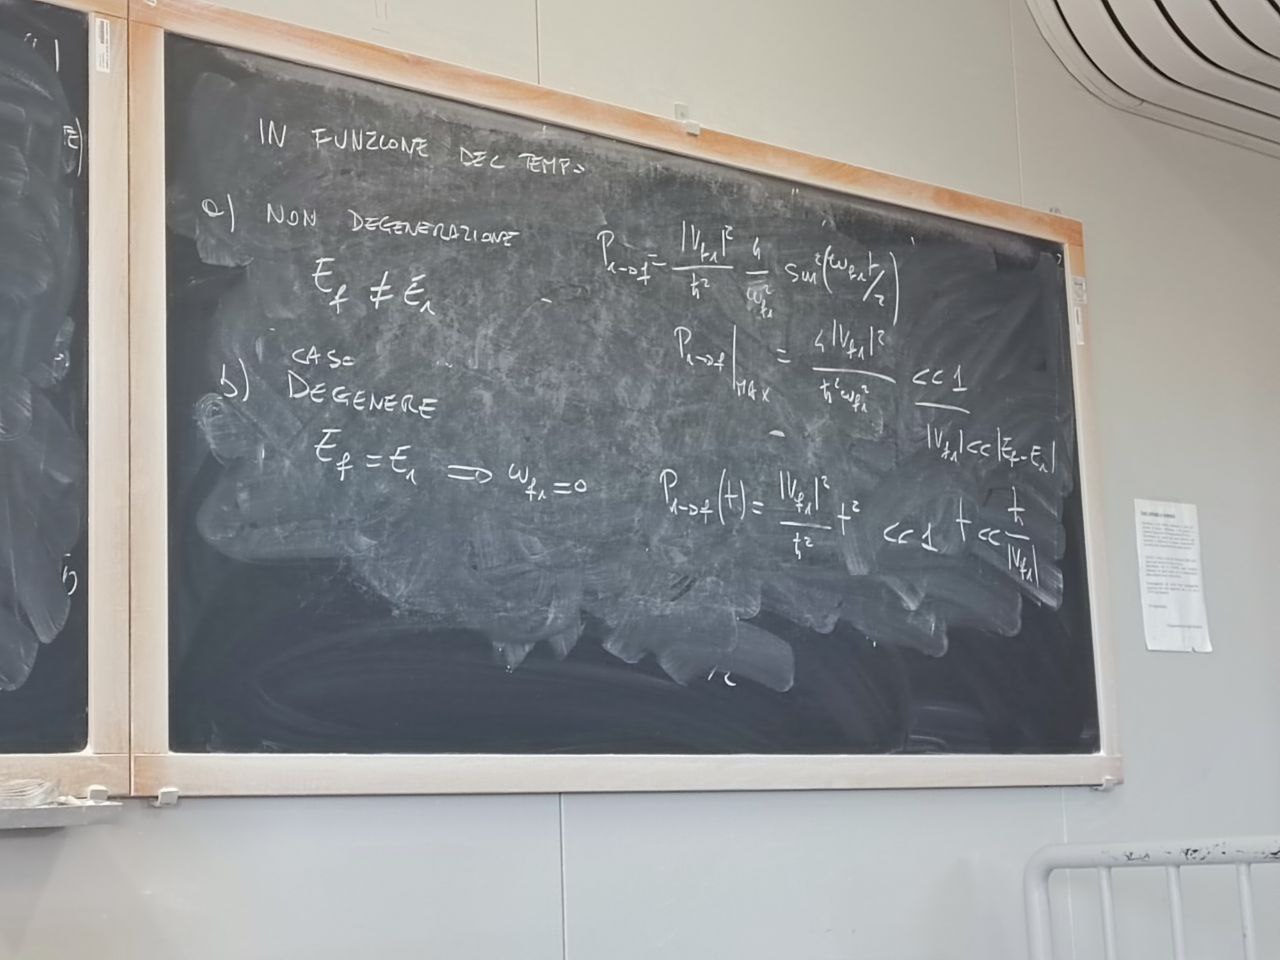 IN FUNZIONE DEL TEMPO
a) NON DEGENERAZIONE
E_f ≠ E_i
P_{i→f} = |V_{fi}|²/ħ² 4/ω_{fi}² sin²(ω_{fi}t/2)
P_{i→f}|_{MAX} = 4|V_{fi}|²/ħ²ω_{fi}² << 1
|V_{fi}| << |E_f - E_i|
b) CASO DEGENERE
E_f = E_i ⇒ ω_{fi} = 0
P_{i→f}(t) = |V_{fi}|²/ħ² t² << 1 t << ħ/|V_{fi}|